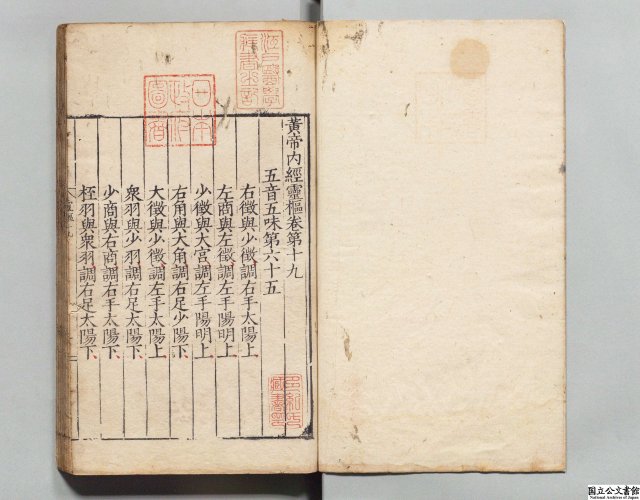 黃帝内經靈樞卷第十九
五音五味第六十五
右徵與少徵調右手太陽上
左商與左徵調左手陽明上
少徵與大宮調左手陽明上
右角與大角調右足少陽下
大徵與少徵調左手太陽上
衆羽與少羽調右足太陽下
少商與右商調右手太陽下
桎羽與衆羽調右足太陽下
江戸醫學
藏書之記
日本
政府
圖書
国立公文書館
National Archives of Japan